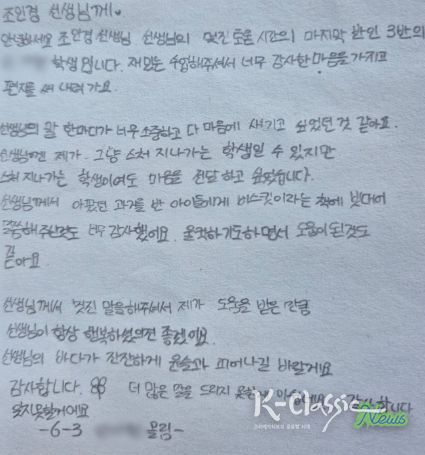 조인경 선생님께♥
안녕하세요 조인경 선생님 선생님의 멋진 도움 시간의 마지막 반인 3반의
학생 입니다. 재밌는 수업해주셔서 너무 감사한 마음을 가지고
편지를 써 내려 가요.
선생님의 말 한마디가 너무 소중하고 다 마음에 새기고 싶었던 것 같아요.
선생님껜 제가 그냥 스쳐 지나가는 학생일 수 있지만
스쳐 지나가는 학생이여도 마음을 전달 하고 싶었습니다.
선생님께서 아팠던 과거를 반 아이들에게 비스킷이라는 책에 빗대어
말씀해주신것도 너무 감사했어요. 울컥하기도하면서 도움이 된것도
같
아요
선생님께서 멋진 말을해주셔서 제가 도움을 받은 만큼
선생님이 항상 행복하셨으면 좋겠어요.
선생님의 바다가 잔잔하게 윤슬과 피어나길 바랄게요
감사합니다. 더 많은 말을 드리지 못하 감사합니다
잊지못할거에요
-6-3 올림-
K-Classic News